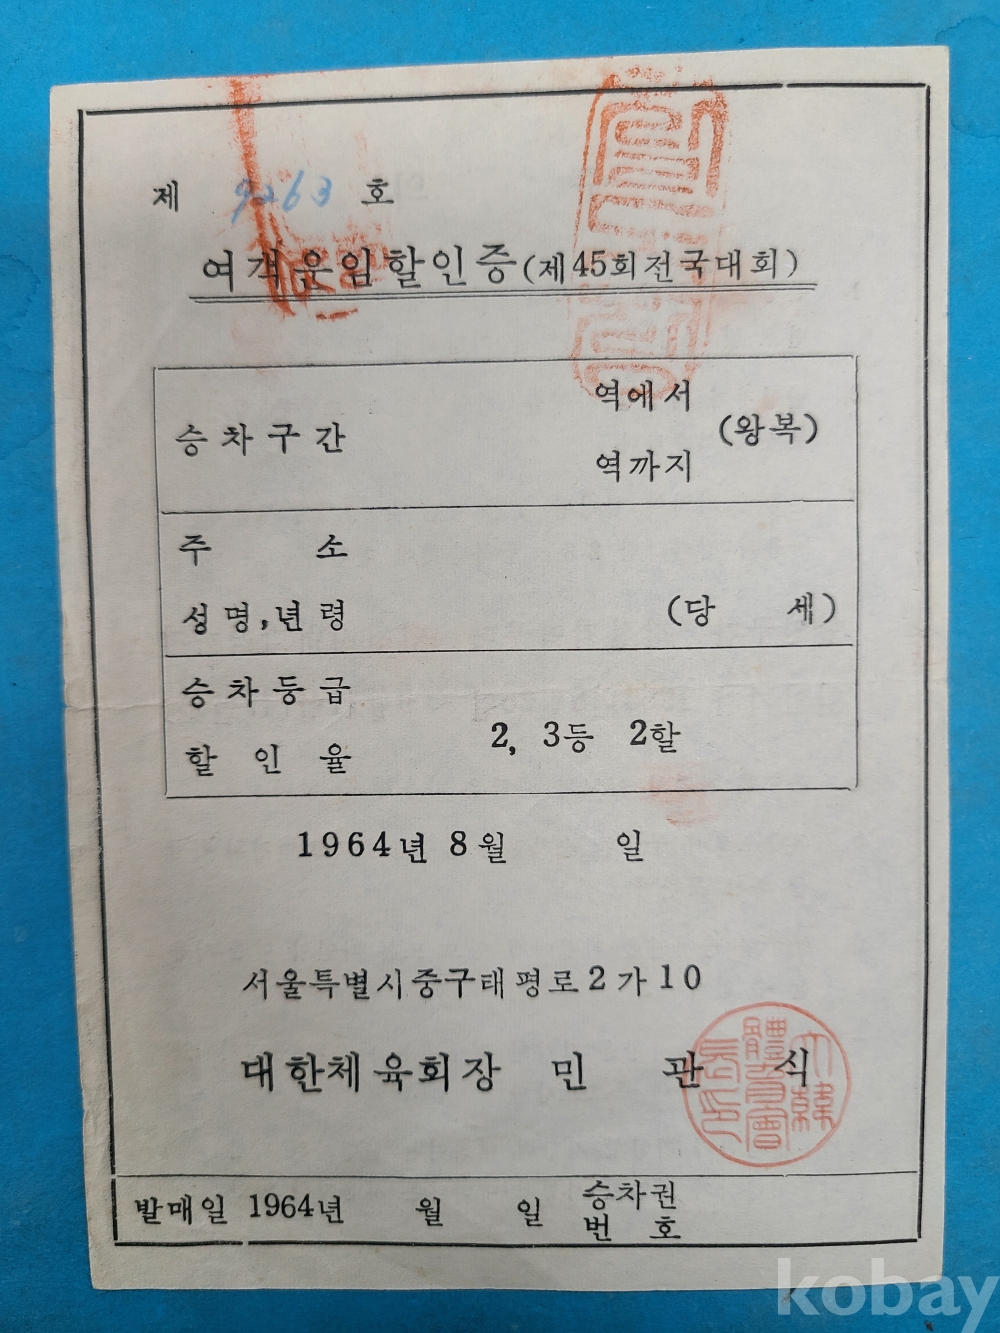 제 9263 호
여객운임할인증(제45회전국대회)
승차구간
역에서
역까지
(왕복)
주 소
성명,년령 (당 세)
승차등급
할인율
2, 3등 2할
1964년 8월 일
서울특별시중구태평로2가10
대한체육회장 민 관 식
大韓體育會長印
발매일 1964년 월 일
승차권
번 호
kobay